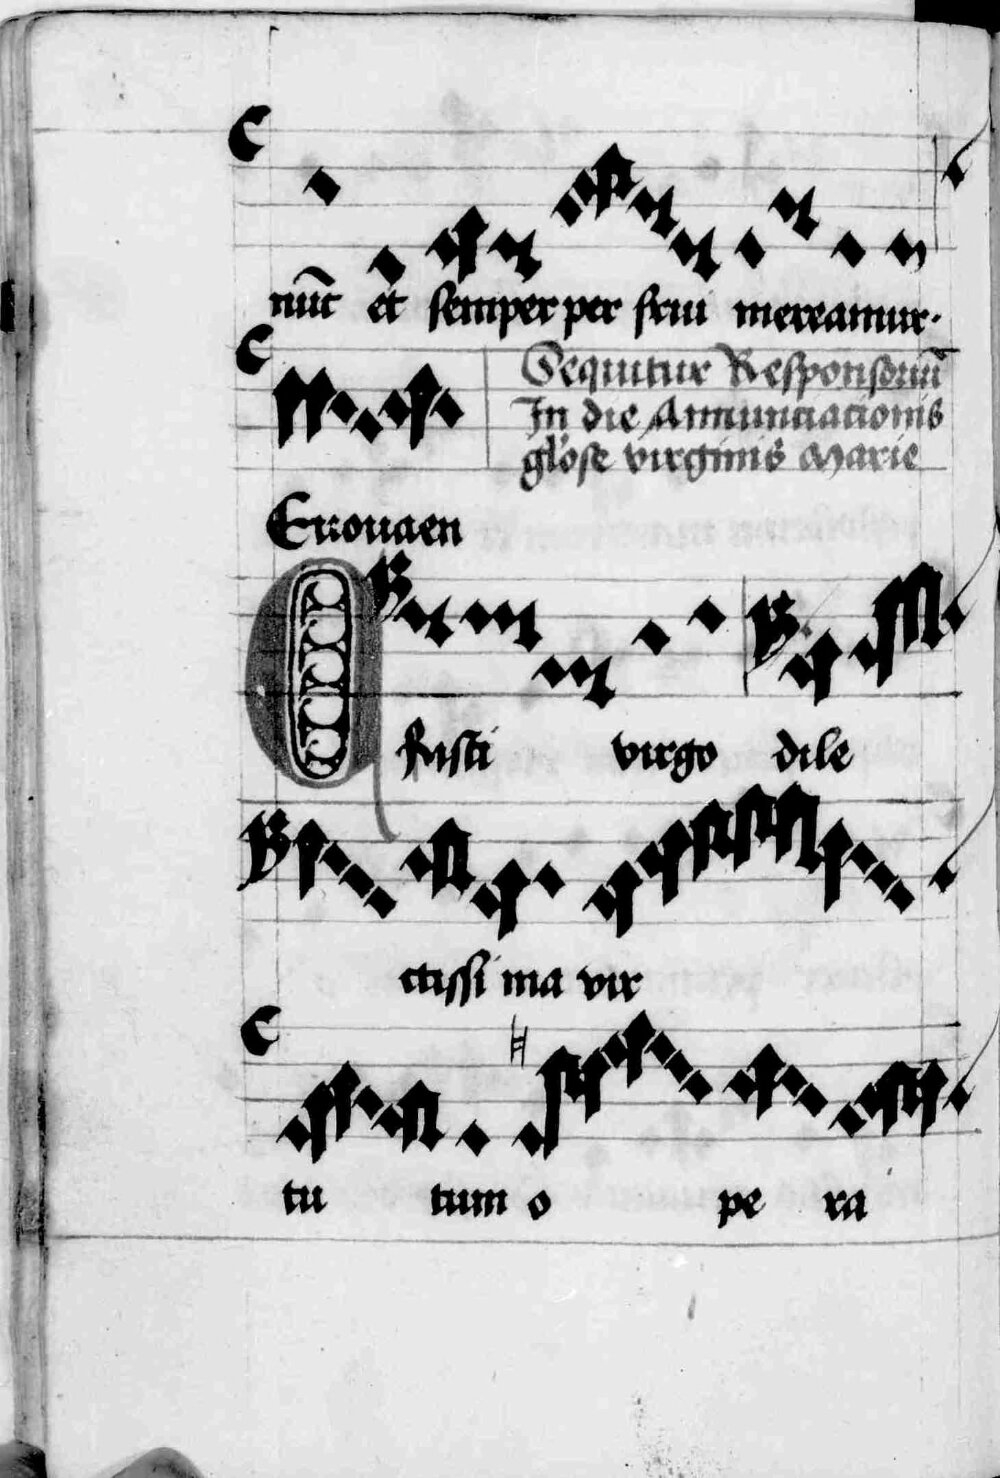 nūc et semper per frui mereamur.
Sequitur Responsoriū
In die Annunciationis
gl'ose virginis Marie
Euouaen
Cristi virgo dile
ctissi ma vir
tu tum o pe ra